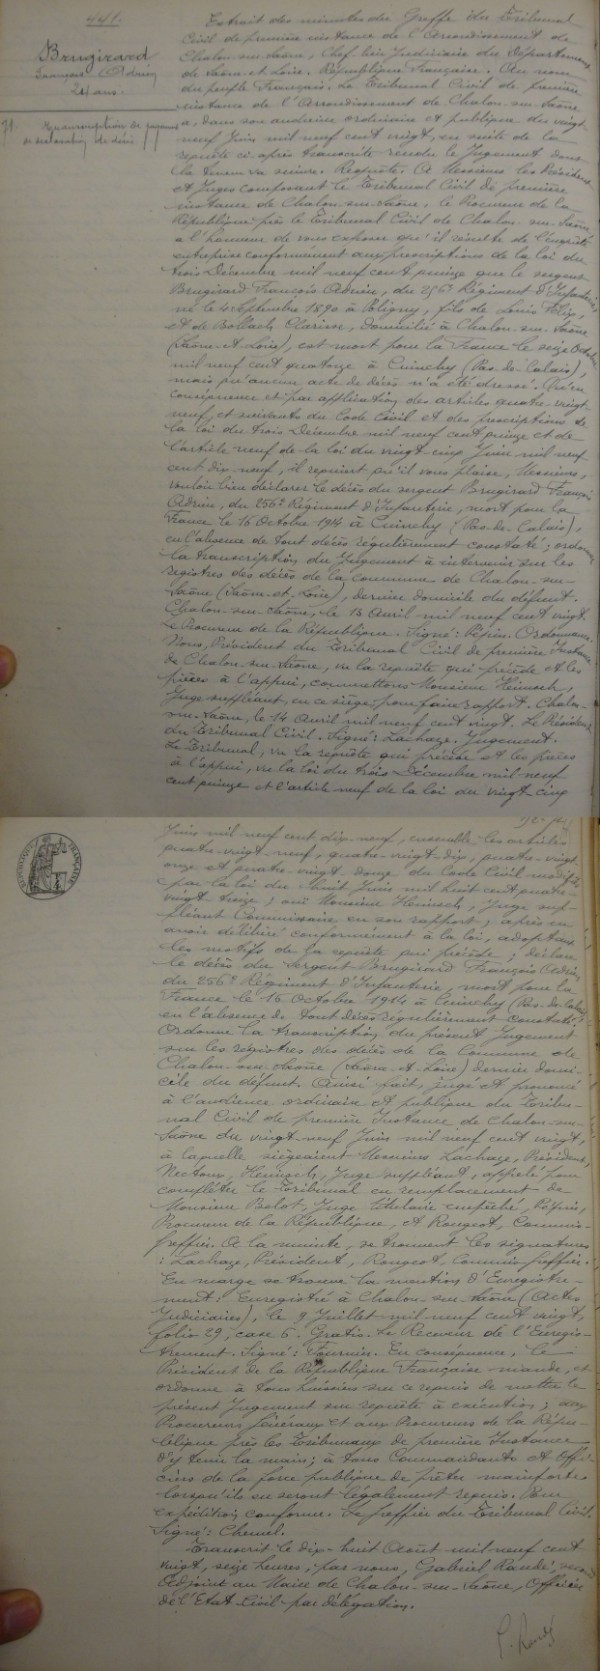 441.
Brugirard
François Adrien
24 ans.
Transcription de jugement
de déclaration de décès
Extrait des minutes du Greffe du Tribunal
Civil de première instance de l'Arrondissement de
Chalon-sur-Saône, Chef-lieu Judiciaire du Département
de Saône-et-Loire. République Française. Au nom
du peuple Français. Le Tribunal Civil de première
instance de l'Arrondissement de Chalon-sur-Saône
a, dans son audience ordinaire et publique du vingt
neuf Juin mil neuf cent vingt, en suite de la
requête ci-après transcrite rendu le Jugement dont
la teneur va suivre. Requête. A Messieurs les Présidents
et Juges composant le Tribunal Civil de première
instance de Chalon-sur-Saône, le Procureur de la
République près le Tribunal Civil de Chalon-sur-Saône,
a l'honneur de vous exposer qu'il résulte de l'enquête
entreprise conformément aux prescriptions de la loi du
trois Décembre mil neuf cent quinze que le sergent
Brugirard François Adrien, du 256e Régiment d'Infanterie,
né le 4 Septembre 1890 à Poligny, fils de Louis
et de Bollach Clarisse, domicilié à Chalon-sur-Saône
(Saône-et-Loire), est mort pour la France le seize Octobre
mil neuf cent quatorze à Cuinchy (Pas-de-Calais),
mais qu'aucun acte de décès n'a été dressé. Qu'en
conséquence et par application des articles quatre-vingt-
neuf, et suivants du Code Civil et des prescriptions de
la loi du trois Décembre mil neuf cent quinze et de
l'article neuf de la loi du vingt-cinq Juin mil neuf
cent dix-neuf, il requiert qu'il vous plaise, Messieurs,
vouloir bien déclarer le décès du sergent Brugirard François
Adrien, du 256e Régiment d'Infanterie, mort pour la
France le 16 Octobre 1914 à Cuinchy (Pas-de-Calais),
en l'absence de tout décès régulièrement constaté; ordonner
la transcription du Jugement à intervenir sur les
registres des décès de la commune de Chalon-sur-
Saône (Saône-et-Loire), dernier domicile du défunt.
Chalon-sur-Saône, le 13 Avril mil neuf cent vingt.
Le Procureur de la République. Signé: Pépin. Ordonnance.
Nous, Président du Tribunal Civil de première Instance
de Chalon-sur-Saône, vu la requête qui précède et les
pièces à l'appui, commettons Monsieur Heinsch,
Juge suppléant, en ce siège, pour faire rapport. Chalon-
sur-Saône, le 14 Avril mil neuf cent vingt. Le Président
du Tribunal Civil. Signé: Lachaze. Jugement.
Le Tribunal, vu la requête qui précède et les pièces
à l'appui, vu la loi du trois Décembre mil neuf
cent quinze et l'article neuf de la loi du vingt cinq
RÉPUBLIQUE FRANÇAISE
Juin mil neuf cent dix-neuf, ensemble les articles
quatre-vingt-neuf, quatre-vingt-dix, quatre-vingt-
onze et quatre-vingt douze du Code Civil modifiés
par la loi du huit Juin mil huit cent quatre
vingt-treize; ouï Monsieur Heinsch, Juge sup-
pléant Commissaire en son rapport, après en
avoir délibéré conformément à la loi, adoptant
les motifs de la requête qui précède; déclare
le décès du sergent Brugirard François Adrien
du 256e Régiment d'Infanterie, mort pour la
France le 16 Octobre 1914 à Cuinchy (Pas-de-Calais)
en l'absence de tout décès régulièrement constaté.
Ordonne la transcription du présent Jugement
sur les registres des décès de la Commune de
Chalon-sur-Saône (Saône-et-Loire) dernier domi-
cile du défunt. Ainsi fait, jugé et prononcé
à l'audience ordinaire et publique du Tribu-
nal Civil de première Instance de Chalon-sur-
Saône du vingt-neuf Juin mil neuf cent vingt,
à laquelle siégeaient Messieurs Lachaze, Président,
Nectoux, Heinsch, Juge suppléant, appelé pour
compléter le Tribunal en remplacement de
Monsieur Bolot, Juge titulaire empêché, Pépin,
Procureur de la République, et Rougeot, Commis-
greffier. A la minute, se trouvent les signatures
: Lachaze, Président, Rougeot, Commis-greffier.
En marge se trouve la mention d'Enregistre-
ment: Enregistré à Chalon-sur-Saône (Actes
Judiciaires), le 9 Juillet mil neuf cent vingt,
folio 29, case 6. Gratis. Le Receveur de l'Enregis-
trement. Signé: Fournier. En conséquence, le
Président de la République Française mande, et
ordonne à tous huissiers sur ce requis de mettre le
présent Jugement sur requête à exécution; aux
Procureurs Généraux et aux Procureurs de la Répu-
blique près les Tribunaux de première Instance
d'y tenir la main; à tous Commandants et Offi-
ciers de la force publique de prêter mainforte
lorsqu'ils en seront légalement requis. Pour
expédition conforme. Le greffier du Tribunal Civil.
Signé: Chemel.
Transcrit le dix-huit Août mil neuf cent
vingt, seize heures, par nous, Gabriel Randé, second
Adjoint au Maire de Chalon-sur-Saône, Officier
de l'Etat-Civil par délégation.